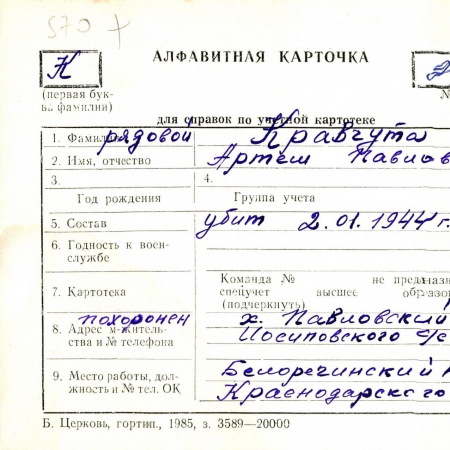 570 +
АЛФАВИТНАЯ КАРТОЧКА
К
(первая бук-
ва фамилии)
№
для справок по учетной картотеке
1. Фамилия рядовой Кравчута
2. Имя, отчество Артем Павлов
3. 4.
Год рождения Группа учета
5. Состав убит 2.01.1944 г.
6. Годность к воен-
службе
7. Картотека
Команда № не предназн
спецучет высшее образо
(подчеркнуть)
похоронен х. Павловский
8. Адрес м-житель-
ства и № телефона
Иосиповского с/с
9. Место работы, дол-
жность и № тел. ОК
Белореченский
Краснодарского
Б. Церковь, гортип., 1985, з. 3589—20000